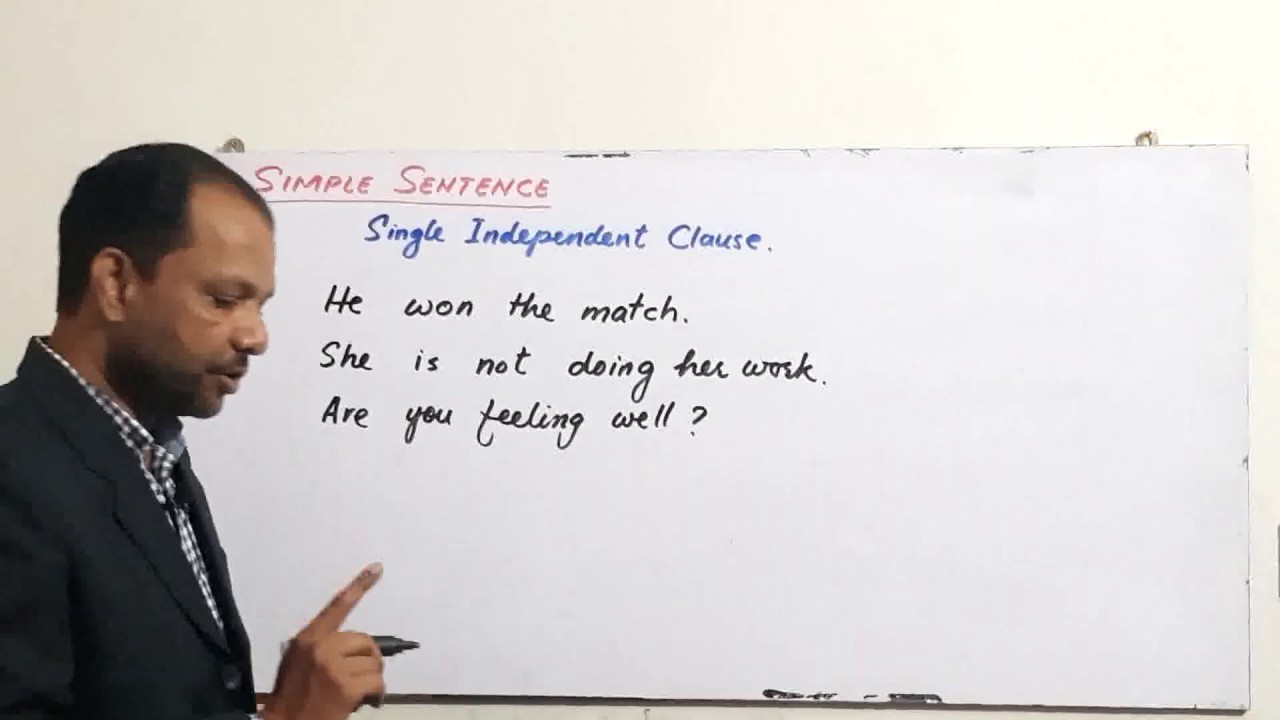 SIMPLE SENTENCE
Single Independent Clause.
He won the match.
She is not doing her work.
Are you feeling well?